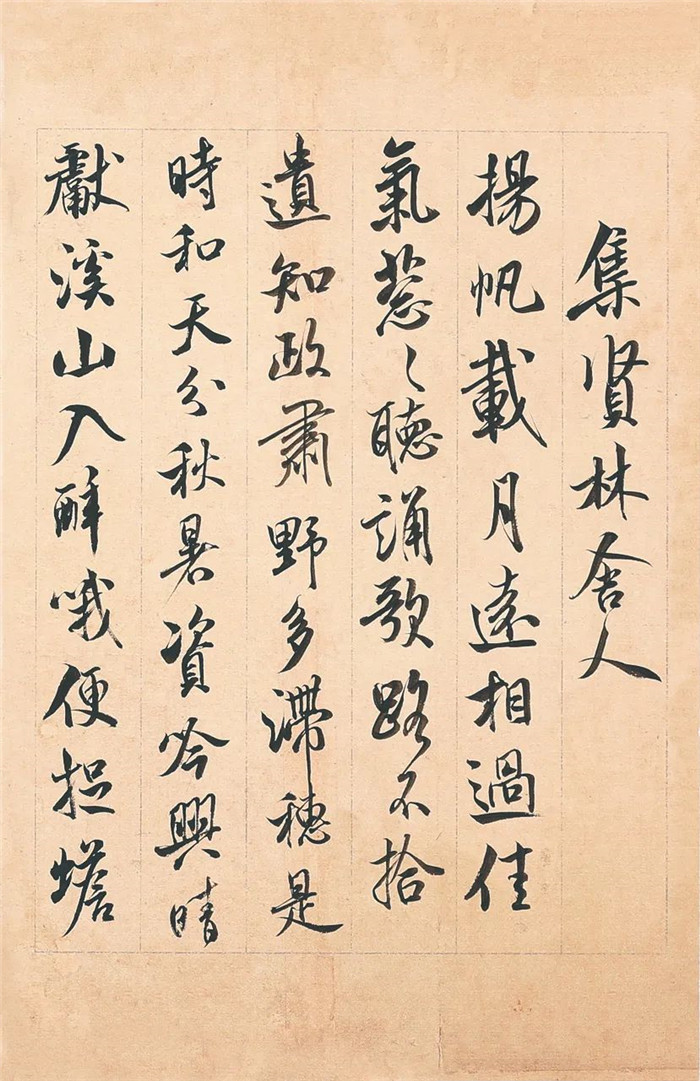 集賢林舍人
揚帆載月遠相過佳
氣葱〻聽誦歌路不拾
遺知政肅野多滯穗是
時和天分秋暑資吟興晴
獻溪山入醉哦便捉蟾